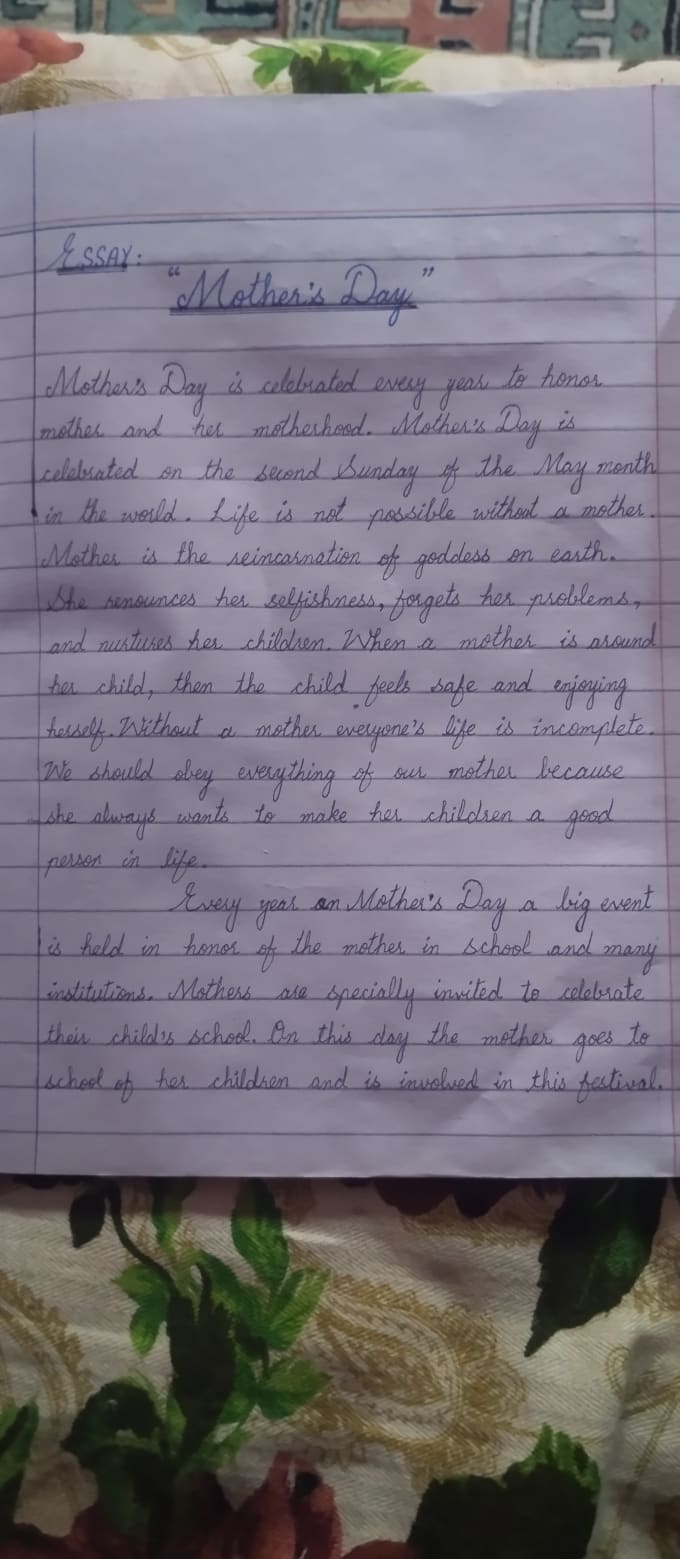 ESSAY:
"Mother's Day"
Mother's Day is celebrated every year to honor
mother and her motherhood. Mother's Day is
celebrated on the second Sunday of the May month
in the world. Life is not possible without a mother.
Mother is the reincarnation of goddess on earth.
She renounces her selfishness, forgets her problems,
and nurtures her children. When a mother is around
her child, then the child feels safe and enjoying
herself. Without a mother everyone's life is incomplete.
We should obey everything of our mother because
she always wants to make her children a good
person in life.
Every year on Mother's Day a big event
is held in honor of the mother in school and many
institutions. Mothers are specially invited to celebrate
their child's school. On this day the mother goes to
school of her children and is involved in this festival.